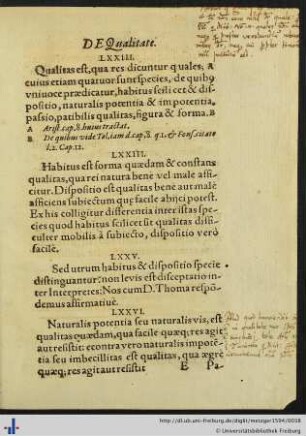 DE Qualitate.
LXXIII.
Qualitas est, qua res dicuntur quales, A
cuius etiam quatuor sunt species, de quibꝰ
vniuoce prædicatur, habitus scilicet & dis-
positio, naturalis potentia & impotentia,
passio, patibilis qualitas, figura & forma. B
A Arist. cap. 8. huius tractat.
B De quibus vide Tol. iam d. cap. 8. q2. & Fons. citato
l. 2. Cap. 12.
LXXIIII.
Habitus est forma quædam & constans
qualitas, qua rei natura bene vel male affi-
citur. Dispositio est qualitas bene aut male
afficiens subiectum quę facile abijci potest.
Ex his colligitur differentia inter istas spe-
cies quod habitus scilicet sit qualitas diffi-
culter mobilis à subiecto, dispositio verò
facilè.
LXXV.
Sed utrum habitus & dispositio specie
distinguantur: non levis est disceptatio in-
ter Interpretes: Nos cum D. Thoma respõ-
demus affirmatiuè.
LXXVI.
Naturalis potentia seu naturalis vis, est
qualitas quædam, qua facile quæq; res agit
aut resistit: econtra vero naturalis impotē-
tia seu imbecillitas est qualitas, qua ægrè
quæq; res agit aut resistit E Pa-
http://dl.ub.uni-freiburg.de/diglit/metzger1594/0038
© Universitätsbibliothek Freiburg